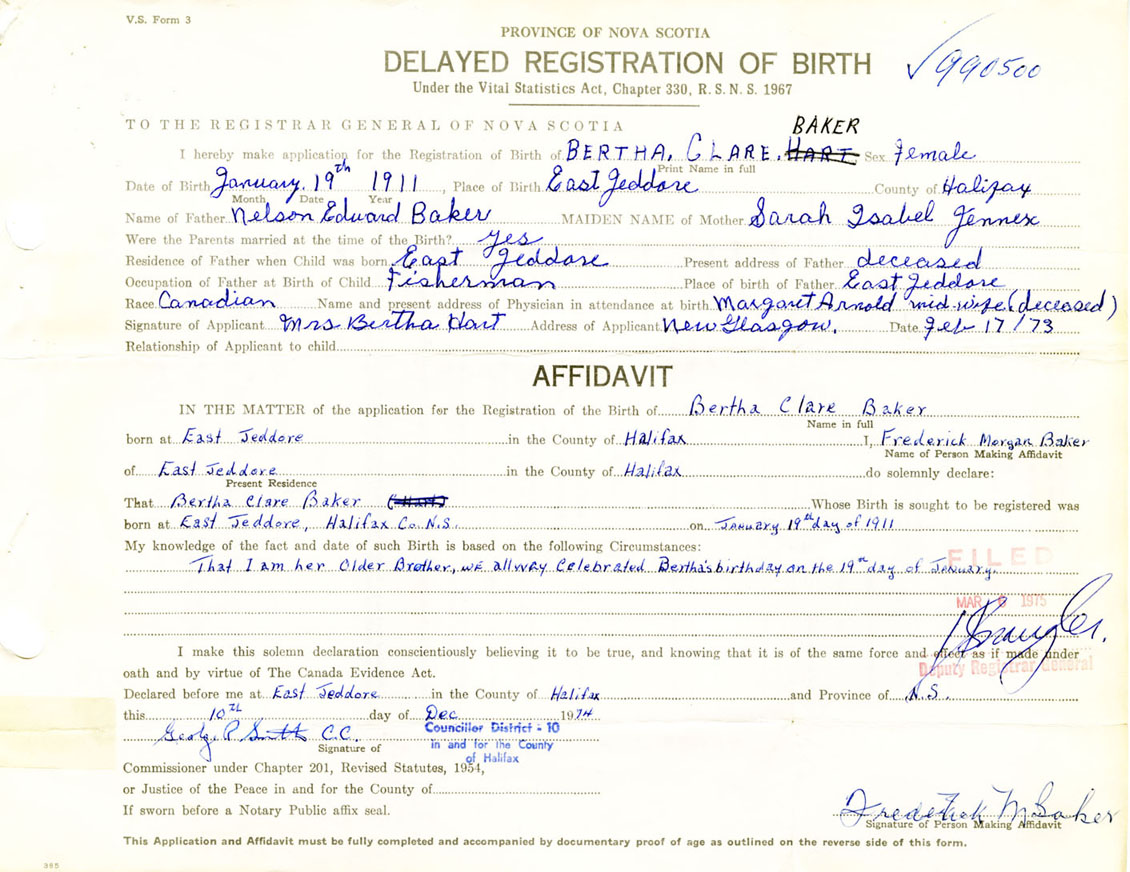 V.S. Form 3
PROVINCE OF NOVA SCOTIA
DELAYED REGISTRATION OF BIRTH
√990500
Under the Vital Statistics Act, Chapter 330, R. S. N. S. 1967
TO THE REGISTRAR GENERAL OF NOVA SCOTIA
BAKER
I hereby make application for the Registration of Birth of BERTHA. CLARE. HART. Sex Female
Print Name in full
Date of Birth January. 19th 1911, Place of Birth East Jeddore County of Halifax
Month Date Year
Name of Father Nelson Edward Baker MAIDEN NAME of Mother Sarah Isabel Jennex
Were the Parents married at the time of the Birth? yes
Residence of Father when Child was born East Jeddore Present address of Father deceased
Occupation of Father at Birth of Child Fisherman Place of birth of Father East Jeddore
Race Canadian Name and present address of Physician in attendance at birth Margaret Arnold mid-wife (deceased)
Signature of Applicant Mrs Bertha Hart Address of Applicant New Glasgow. Date Feb 17/73
Relationship of Applicant to child
AFFIDAVIT
IN THE MATTER of the application for the Registration of the Birth of Bertha Clare Baker
Name in full
born at East Jeddore in the County of Halifax I, Frederick Morgan Baker
Name of Person Making Affidavit
of East Jeddore in the County of Halifax do solemnly declare:
Present Residence
That Bertha Clare Baker (Hart) Whose Birth is sought to be registered was
born at East Jeddore, Halifax Co. N.S. on January 19th day of 1911
My knowledge of the fact and date of such Birth is based on the following Circumstances:
That I am her Older Brother, we allway Celebrated Bertha's birthday on the 19th day of January.
FILED
MAR 6 1975
I make this solemn declaration conscientiously believing it to be true, and knowing that it is of the same force and effect as if made under
oath and by virtue of The Canada Evidence Act.
Deputy Registrar General
Declared before me at East Jeddore in the County of Halifax and Province of N.S.
this 10TH day of Dec 1974
George P. Smith C.C.
Councillor District - 10
in and for the County
of Halifax
Signature of
Commissioner under Chapter 201, Revised Statutes, 1954,
or Justice of the Peace in and for the County of
If sworn before a Notary Public affix seal.
Frederick M Baker
Signature of Person Making Affidavit
This Application and Affidavit must be fully completed and accompanied by documentary proof of age as outlined on the reverse side of this form.
385